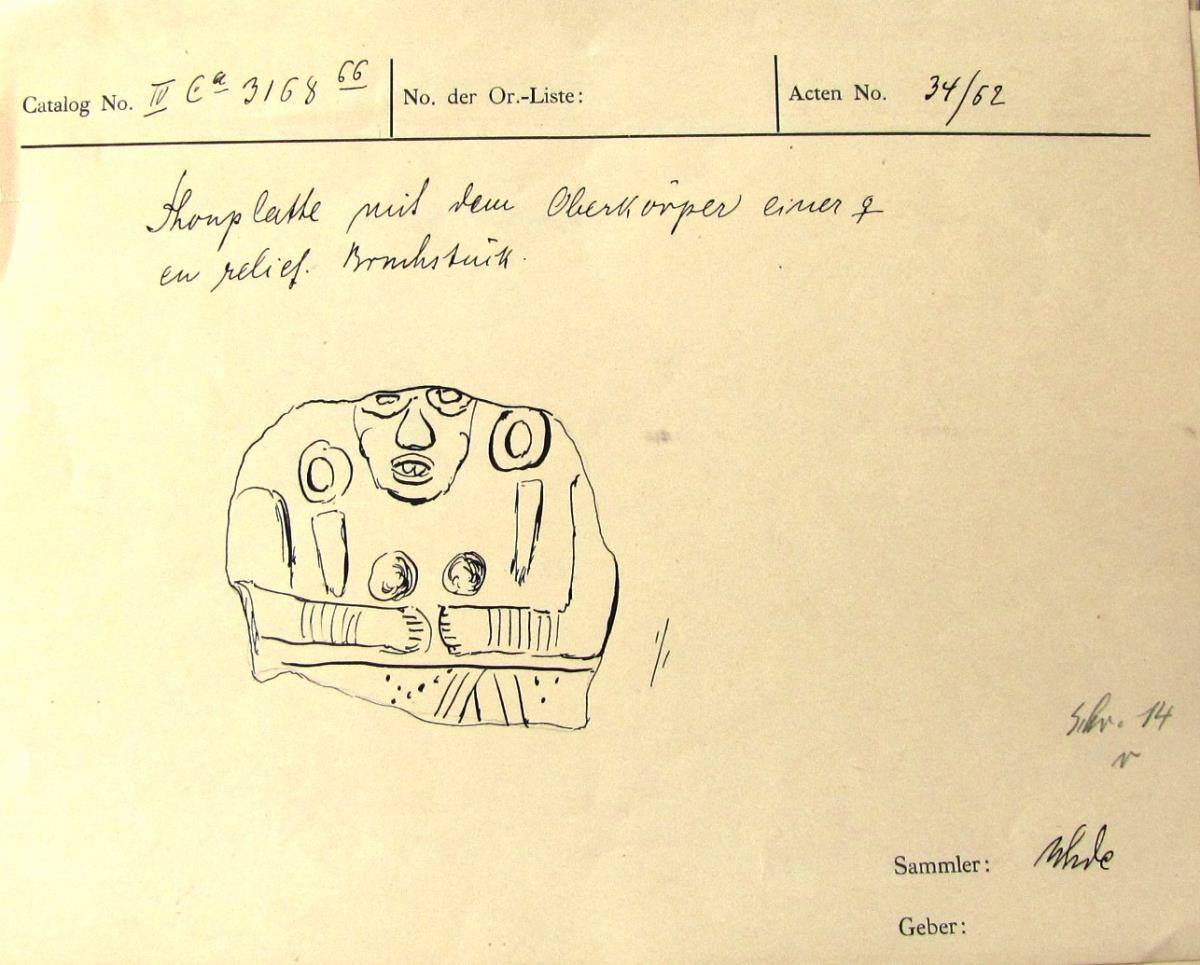 Catalog No. IV Ca 3168 66
No. der Or.-Liste:
Acten No. 34/62
Thonplatte mit dem Oberkörper einer ♀
en relief. Bruchstück.
1/1
14
Sammler: Uhde
Geber: